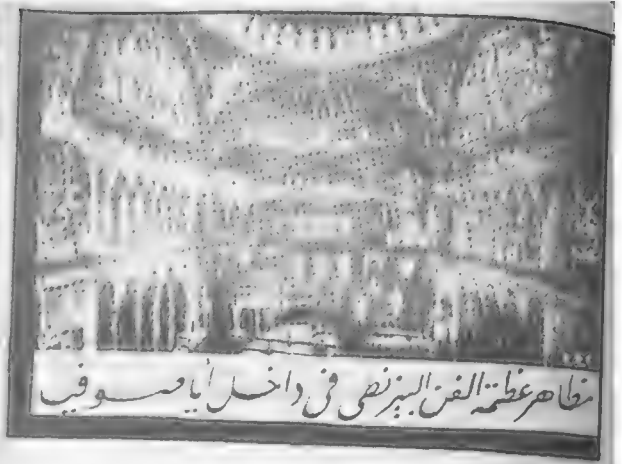 مظاهر عظمة الفن البيزنطى فى داخل أيا صوفيا